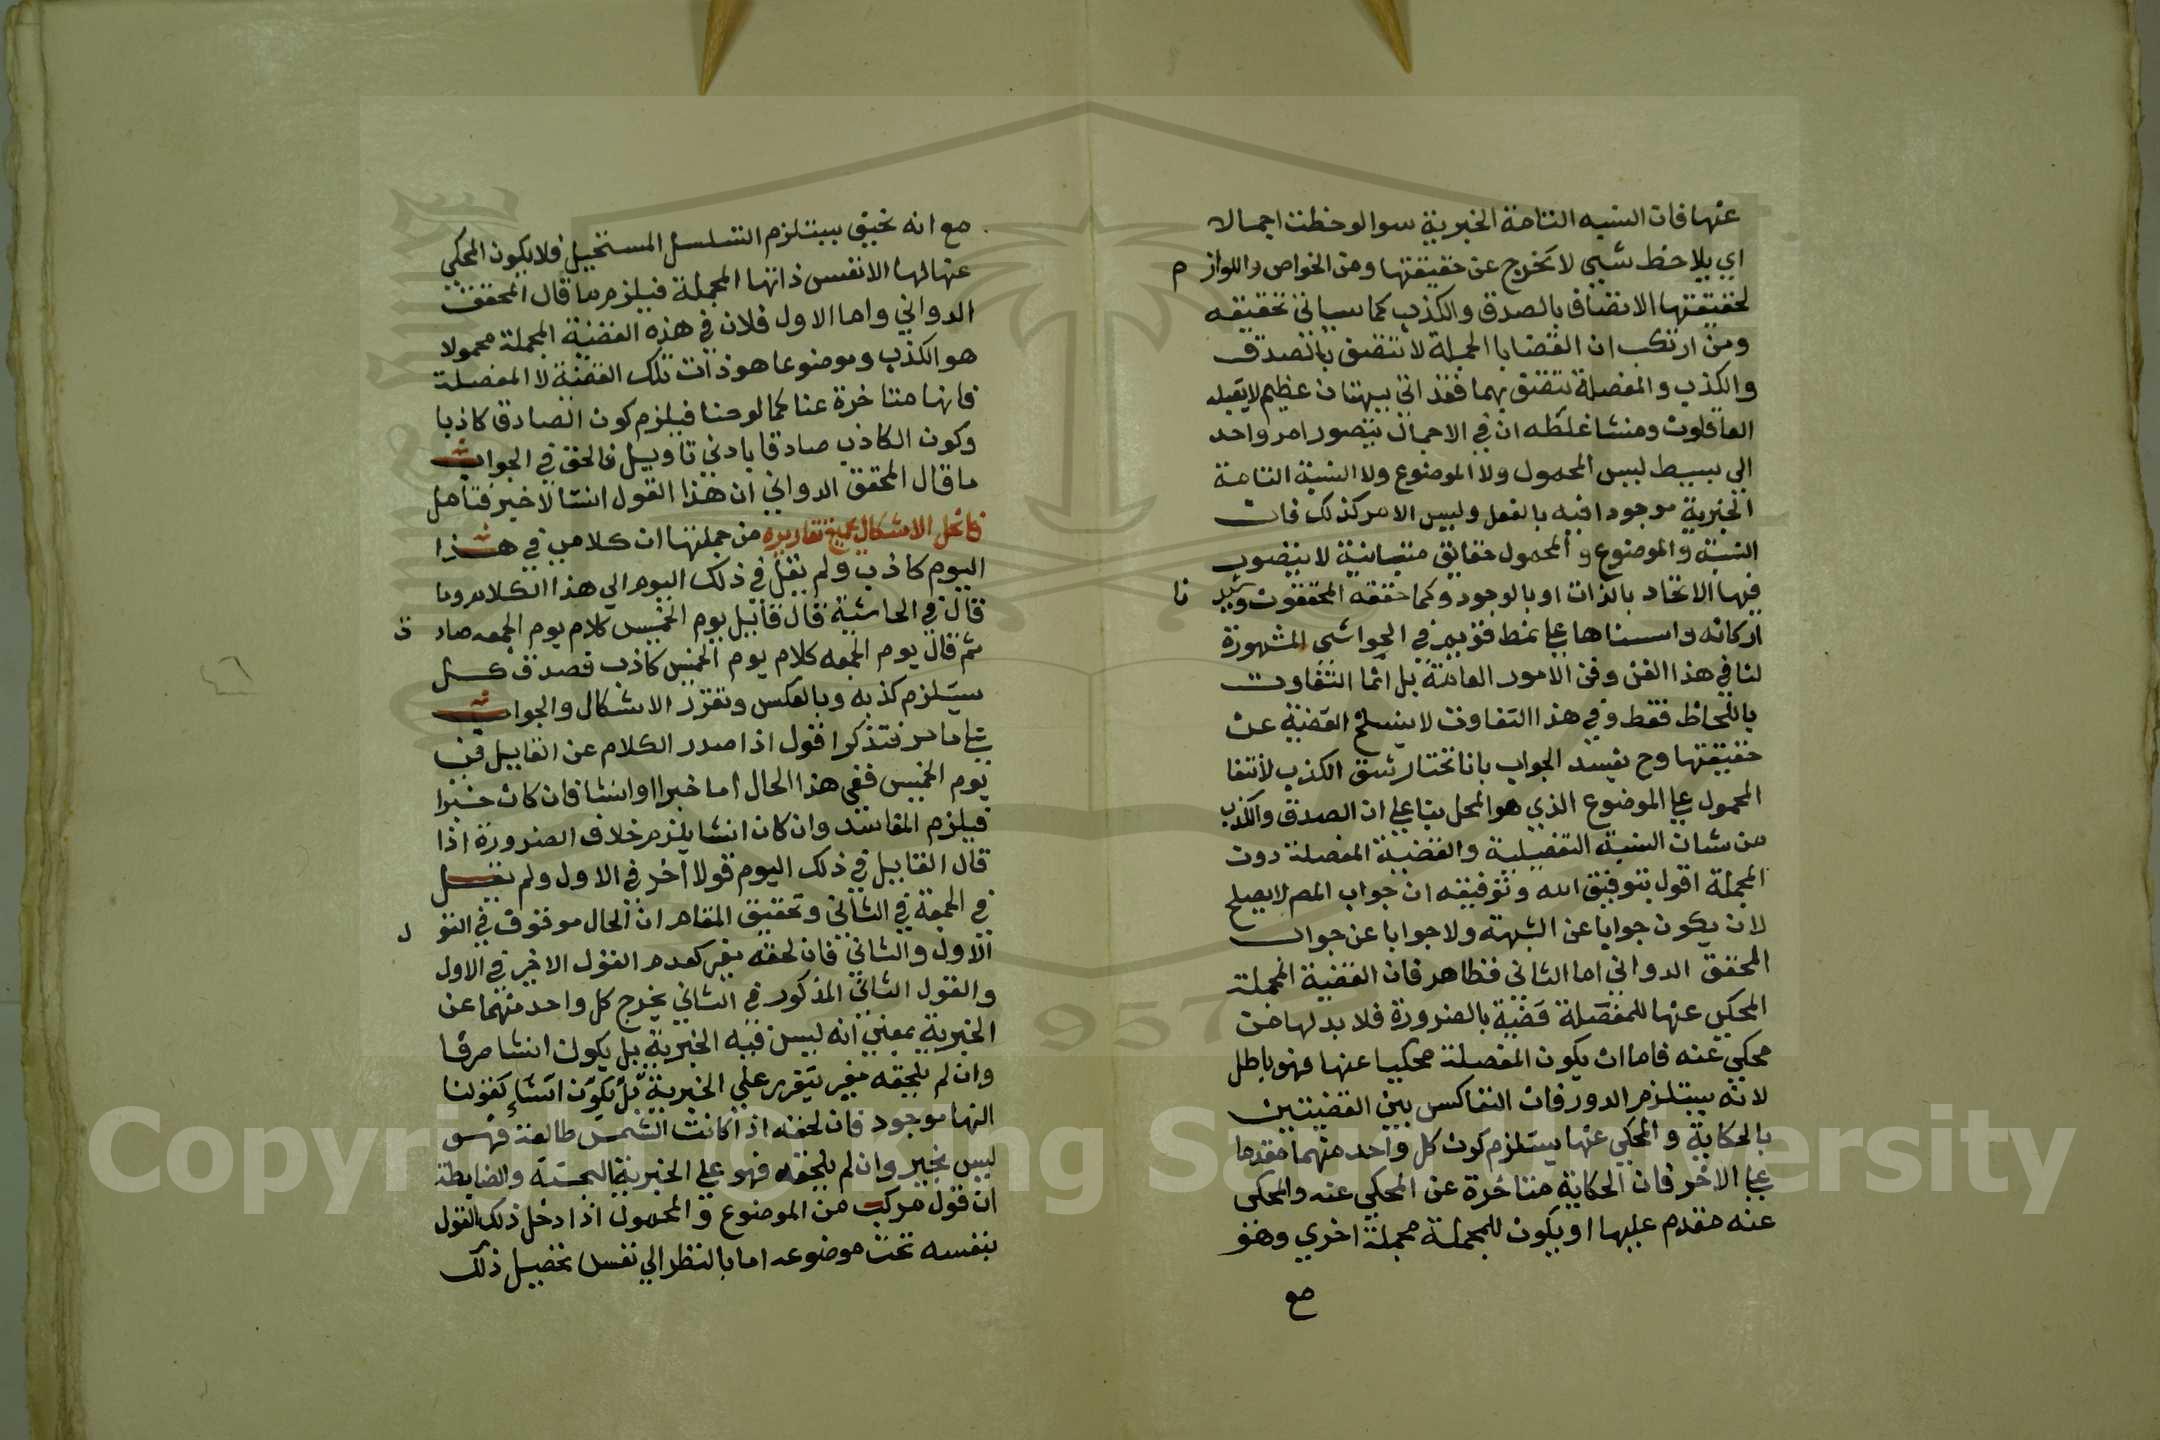 عنها فان النسبه التامة الخبرية سوا لوحظت اجمالا
اي بلاحظ شيي لا تخرج عن حقيقتها ومن الخواص واللواز م
لحقيقتها الاتصاف بالصدق والكذب كما سياتي تحقيقه
ومن ارتكب ان القضايا المجملة لا تتصف بالصدق
والكذب والمفصلة تتصف بهما فقد اتي ببهتان عظيم لا يقبله
العاقلون ومنشا غلطه ان في الاجمال يتصور امر واحد
الي بسيط ليس المحمول ولا الموضوع ولا النسبة التامة
الخبرية موجودا فيه بالفعل وليس الامر كذلك فان
النسبة والموضوع والمحمول حقايق متباينة لا يتصوب
فيها الاتحاد بالذات او بالوجود وكما حققه المحققون وشيد نا
اركانه واسسناها علي نمط قويم في الحواشي المشهورة
لنا في هذا الفن وفن الامور العامة بل انما التفاوت
باللحاظ فقط وفي هذا التفاوت لا ينسلخ القضية عن
حقيقتها وح يفسد الجواب بانا نختار شق الكذب لانتفا
المحمول علي الموضوع الذي هو المحل بنا علي ان الصدق والكذب
من شان النسبة التفصيلية والقضية المفصلة دون
المجملة اقول بتوفيق الله وتوفيقه ان جواب المص لا يصلح
لان يكون جوابا عن الشبهة ولا جوابا عن جواب
المحقق الدواني اما الثاني فظاهر فان القضية المجملة
المحكي عنها للمفصلة قضية بالضرورة فلا بد لها من
محكي عنه فاما ان يكون المفصلة محكيا عنها فهو باطل
لانه يستلزم الدور فان التعاكس بين القضيتين
بالحكاية والمحكي عنها يستلزم كون كل واحد منهما مقدما
علي الاخر فان الحكاية متاخرة عن المحكي عنه والمحكي
عنه مقدم عليها او يكون للمجملة مجملة اخري وهو
مع
مع انه تحقيق يستلزم التسلسل المستحيل فلا يكون المحكي
عنها لها الا نفس ذاتها المجملة فيلزم ما قال المحقق
الدواني واما الاول فلان في هذه القضية المجملة محمولا
هو الكذب وموضوعا هو ذات تلك القضية لا المفصلة
فانها متاخرة عنا كما لوحنا فيلزم كون الصادق كاذبا
وكون الكاذب صادقا بادني تاويل فالحق في الجواب
ما قال المحقق الدواني ان هذا القول انشا لا خبر فتامل
فانحل الاشكال بجميع تقاريره من جملتها ان كلامي في هذا
اليوم كاذب ولم يقل في ذلك اليوم الي هذا الكلام وما
قال في الحاشية قال قائيل يوم الخميس كلام يوم الجمعه صاد ق
ثم قال يوم الجمعه كلام يوم الخميس كاذب فصدق كل
يستلزم كذبه وبالعكس وتقرر الاشكال والجواب
علي ما مر فتذكر اقول اذا صدر الكلام عن القايل في
يوم الخميس ففي هذا الحال اما خبرا او انشا فان كان خبرا
فيلزم المفاسد وان كان انشا يلزم خلاف الضرورة اذا
قال القايل في ذلك اليوم قولا اخر في الاول ولم يقل
في الجمعة في الثاني وتحقيق المقام ان الحال موقوف في القو ل
الاول والثاني فان لحقه مغير كعدم القول الاخير في الاول
والقول الثاني المذكور في الثاني يخرج كل واحد منهما عن
الخبرية بمعني انه ليس فيه الخبرية بل يكون انشا صرفا
وان لم يلحقه مغير يتقرر علي الخبرية بل يكون انشاء كقولنا
النها موجود فان لحقه اذا كانت الشمس طالعة فهو
ليس بخبر وان لم يلحقه فهو علي الخبرية البحتة والضابطة
ان قول مركب من الموضوع والمحمول اذا دخل ذلك القول
بنفسه تحت موضوعه اما بالنظر الي نفس تحصيل ذلك
Copyright © King Saud University
1957